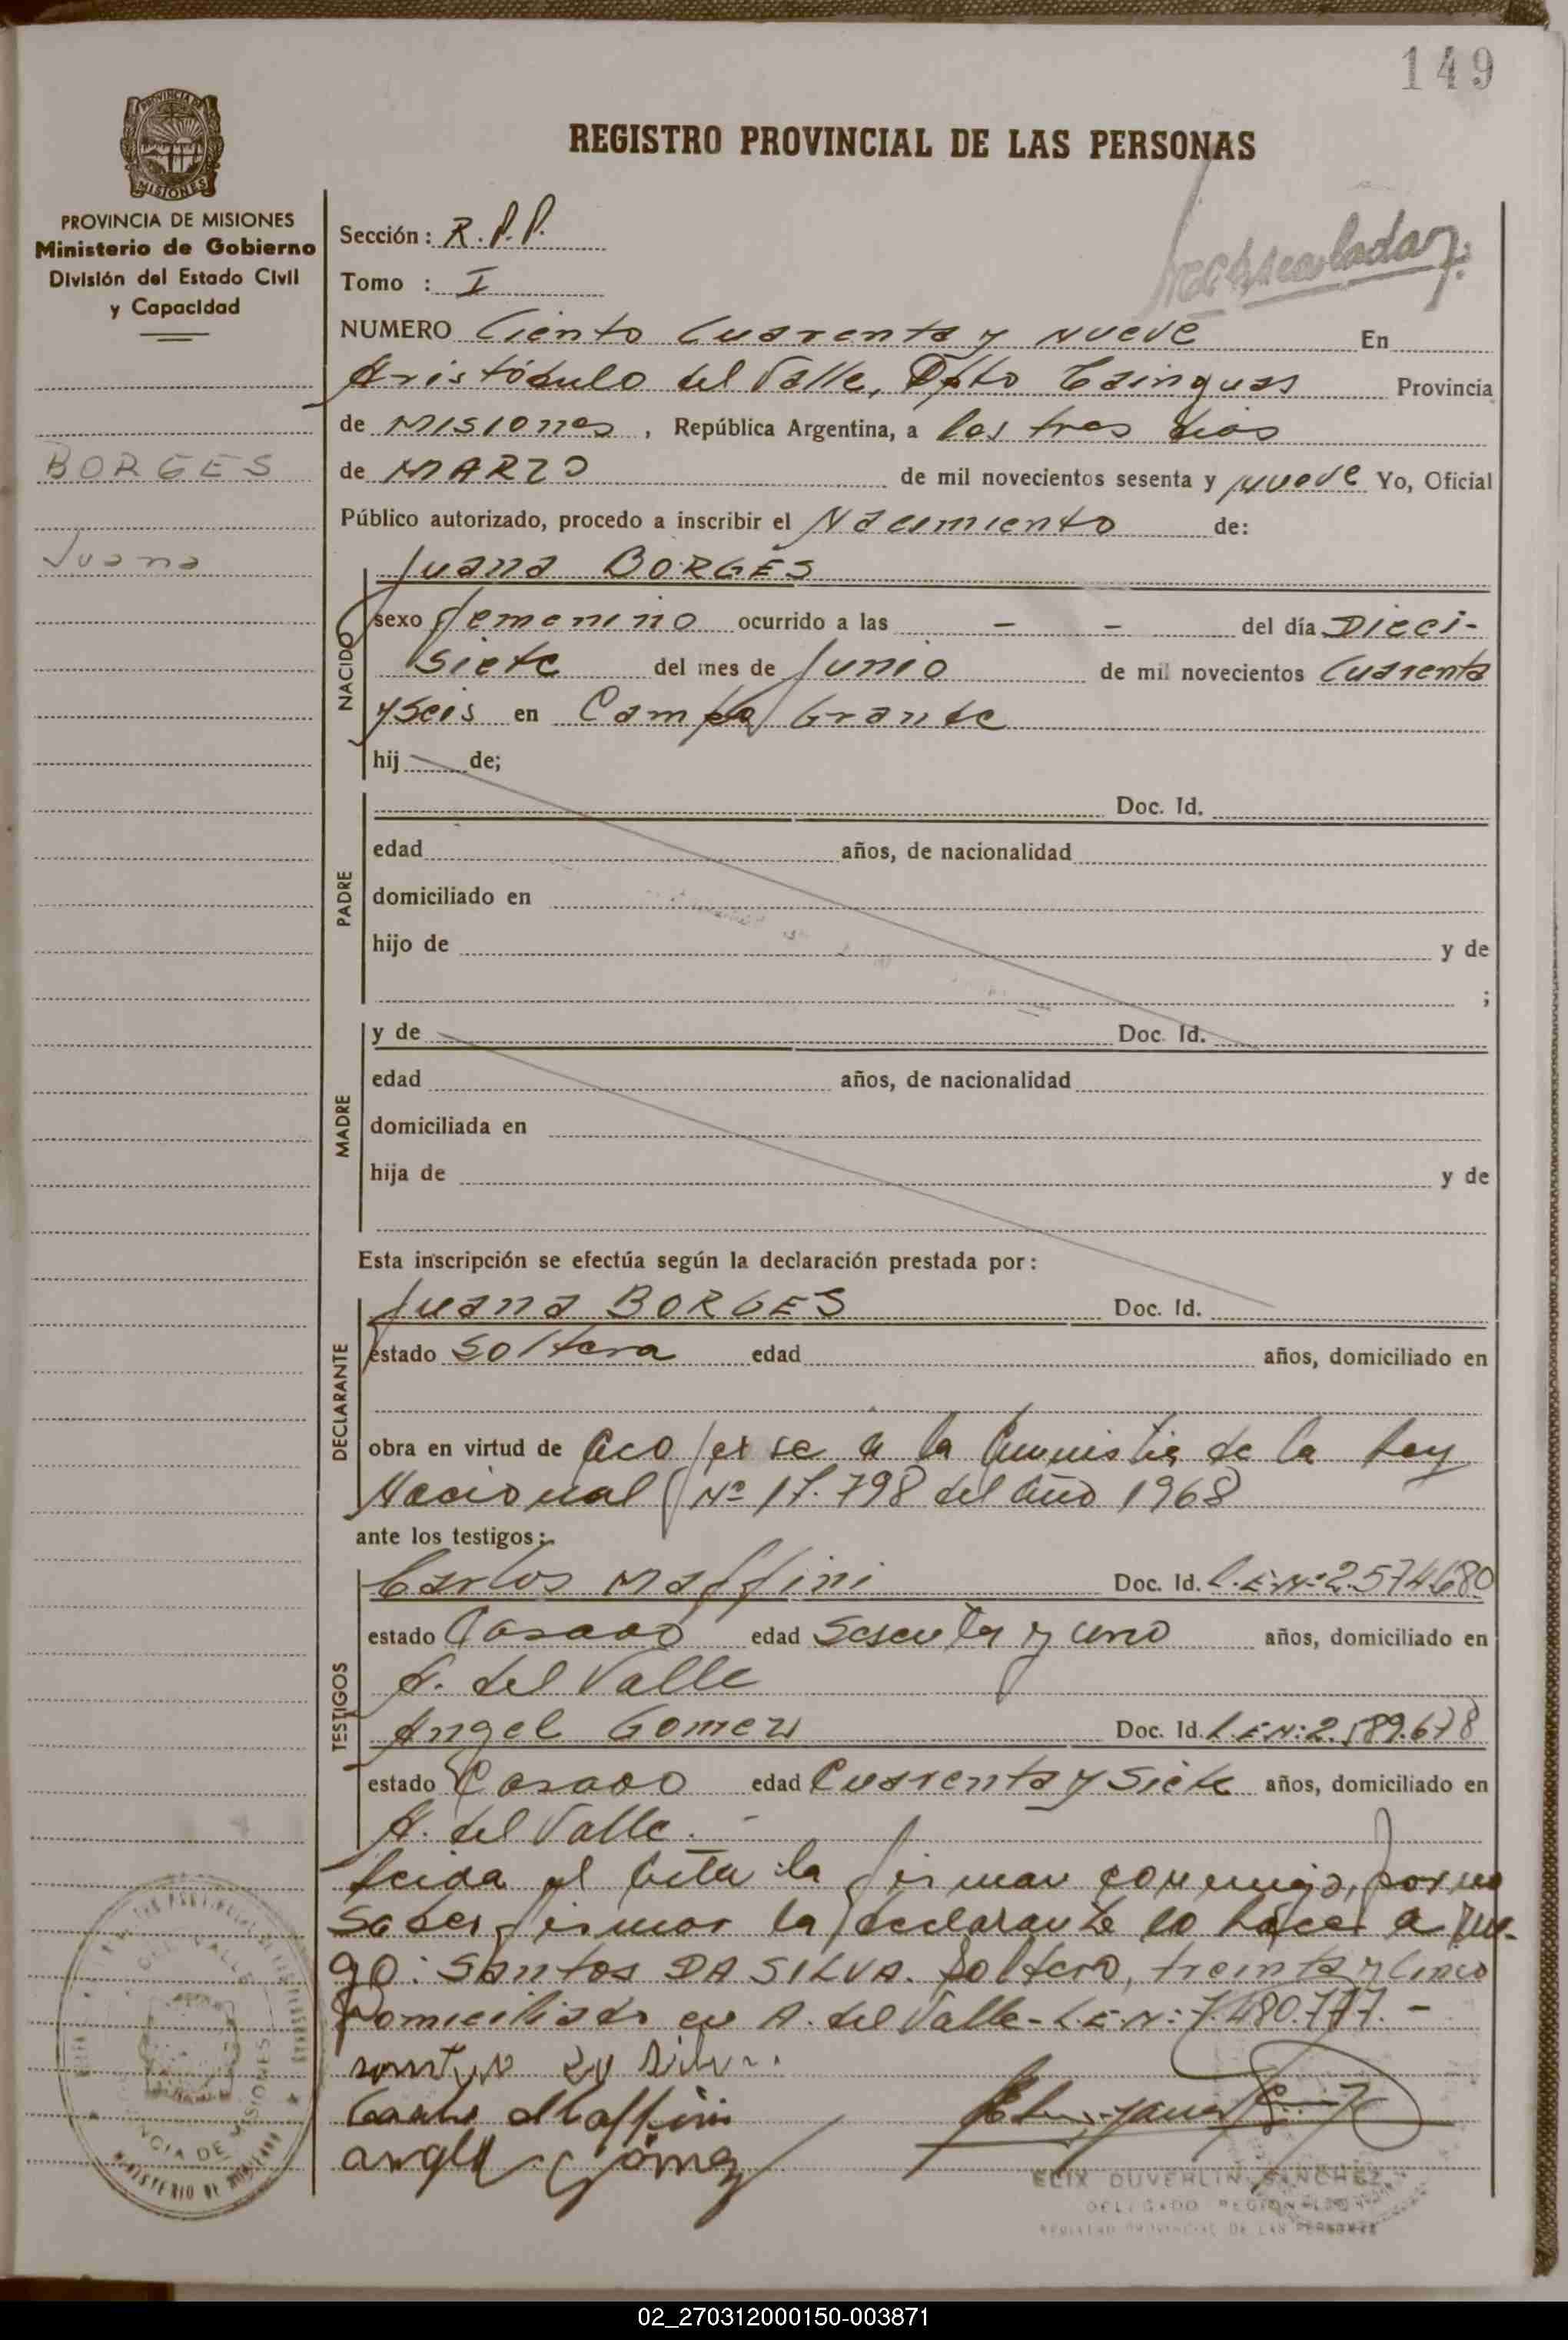 149
REGISTRO PROVINCIAL DE LAS PERSONAS
PROVINCIA DE MISIONES
Ministerio de Gobierno
División del Estado Civil
y Capacidad
BORGES
Juana
Sección: R.P.P.
Tomo : I
NUMERO Ciento Cuarenta y nueve En
Aristóbulo del Valle, Dpto Cainguas Provincia
de Misiones, República Argentina, a los tres días
de MARZO de mil novecientos sesenta y nueve Yo, Oficial
Público autorizado, procedo a inscribir el Nacimiento de:
NACIDO
Juana BORGES
sexo femenino ocurrido a las — — del día Dieci-
siete del mes de Junio de mil novecientos Cuarenta
y seis en Campo Grande
hij de;
PADRE
Doc. Id.
edad años, de nacionalidad
domiciliado en
hijo de y de
;
MADRE
y de Doc. Id.
edad años, de nacionalidad
domiciliada en
hija de y de
Esta inscripción se efectúa según la declaración prestada por:
DECLARANTE
Juana BORGES Doc. Id.
estado soltera edad años, domiciliado en
obra en virtud de acojerse a la Amnistia de la Ley
Nacional Nº 17.798 del año 1968
ante los testigos:
TESTIGOS
Carlos Maffini Doc. Id. L.E.Nº 2.574.680
estado Casado edad Sesenta y uno años, domiciliado en
A. del Valle
Angel Gomez Doc. Id. L.E.N: 2.589.678
estado Casado edad Cuarenta y Siete años, domiciliado en
A. del Valle.-
Leida el acta la firman conmigo, por no
saber firmar la declarante lo hace a rue-
go: Santos DA SILVA. Soltero, treinta y cinco
Domiciliado en A. del Valle - L.E.N: 7.480.777.-
Carlos Maffini
angel Gómez
ELIX DUVERLIN SANCHEZ
DELEGADO REGIONAL
REGISTRO PROVINCIAL DE LAS PERSONAS
02_270312000150-003871